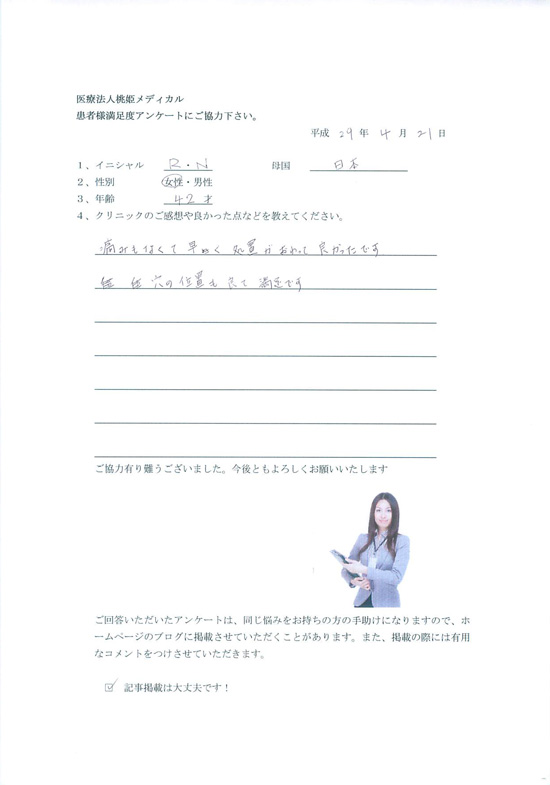 医療法人桃姫メディカル
患者様満足度アンケートにご協力下さい。
平成 29 年 4 月 21 日
1、イニシャル R・N 母国 日本
2、性別 女性・男性
3、年齢 42才
4、クリニックのご感想や良かった点などを教えてください。
痛みもなくて早めく処置がおわって良かったです
穴の位置も良て満足です
ご協力有り難うございました。今後ともよろしくお願いいたします
ご回答いただいたアンケートは、同じ悩みをお持ちの方の手助けになりますので、ホ
ームページのブログに掲載させていただくことがあります。また、掲載の際には有用
なコメントをつけさせていただきます。
☑ 記事掲載は大丈夫です！